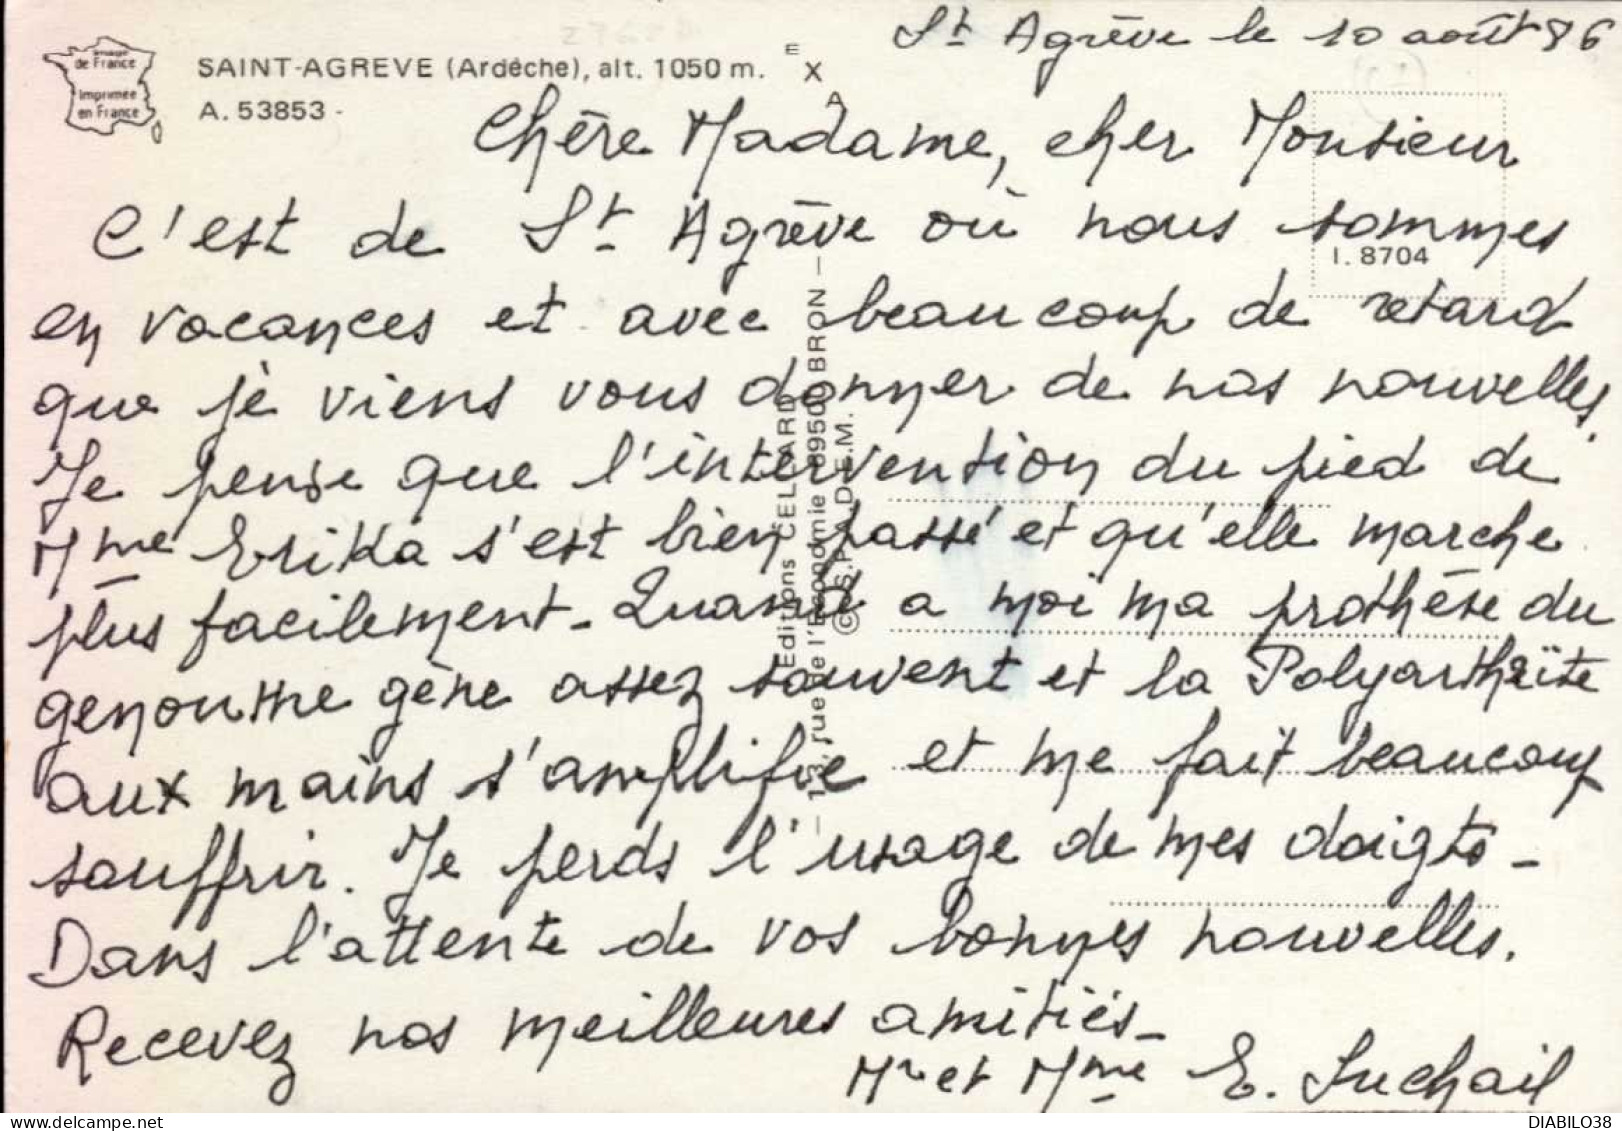 St Agrève le 10 août 86
Imprimée
de France
Imprimée
en France
SAINT-AGREVE (Ardèche), alt. 1050 m.
A. 53853 -
E
X
A
Chère Madame, cher Monsieur
C'est de St Agrève où nous sommes
I. 8704
en vacances et avec beaucoup de retard
que je viens vous donner de nos nouvelles.
Je pense que l'intervention du pied de
Mme Erika s'est bien passé et qu'elle marche
plus facilement - Quand a moi ma prothèse du
genou me gène assez souvent et la Polyarthrïte
aux mains s'amplifie et me fait beaucoup
souffrir. Je perds l'usage de mes doigts -
Dans l'attente de vos bonnes nouvelles.
Recevez nos meilleures amitiés -
Mr et Mme E. Suchail
Editions CELLARD
rue de l'Economie 69500 BRON —
© S.P.A.D.E.M.
DIABILO38